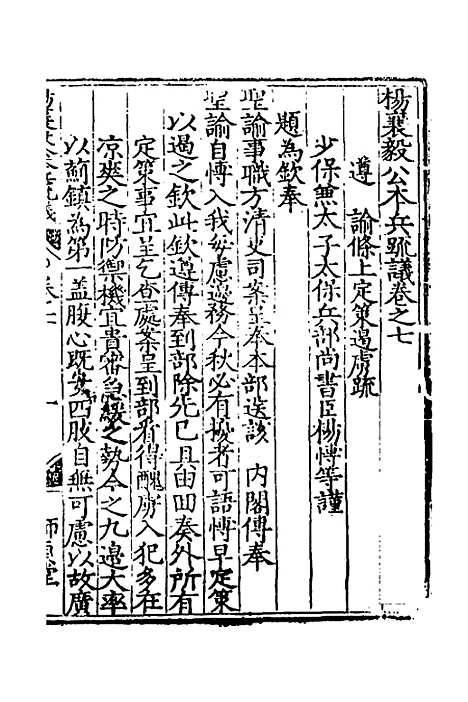 楊襄毅公本兵疏議卷之七
遵諭條上定策遏虜疏
少保兼太子太保兵部尚書臣楊博等謹
題為欽奉
聖諭事職方清吏司案呈奉本部送該內閣傳奉
聖諭自博入我每慮邊務今秋必有擾者可語博早定策
以遏之欽此欽遵傳奉到部除先已具由回奏外所有
定策事宜呈乞查處案呈到部看得醜虜入犯多在
凉爽之時防禦機宜貴審急緩之勢今之九邊大率
以薊鎮為第一盖腹心既安四肢自無可慮以故廣
師儉堂